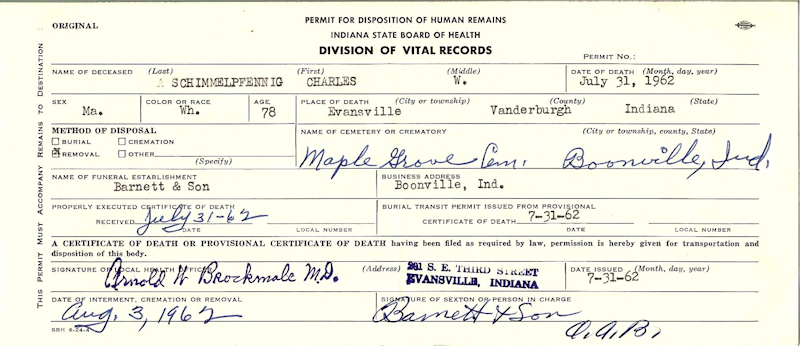 ORIGINAL
PERMIT FOR DISPOSITION OF HUMAN REMAINS
INDIANA STATE BOARD OF HEALTH
DIVISION OF VITAL RECORDS
PERMIT NO.:
THIS PERMIT MUST ACCOMPANY REMAINS TO DESTINATION
NAME OF DECEASED (Last) (First) (Middle) DATE OF DEATH (Month, day, year)
SCHIMMELPFENNIG CHARLES W. July 31, 1962
SEX COLOR OR RACE AGE PLACE OF DEATH (City or township) (County) (State)
Ma. Wh. 78 Evansville Vanderburgh Indiana
METHOD OF DISPOSAL NAME OF CEMETERY OR CREMATORY (City or township, county, State)
BURIAL CREMATION
REMOVAL OTHER
(Specify)
Maple Grove Cem. Boonville, Ind.
NAME OF FUNERAL ESTABLISHMENT BUSINESS ADDRESS
Barnett & Son Boonville, Ind.
PROPERLY EXECUTED CERTIFICATE OF DEATH BURIAL TRANSIT PERMIT ISSUED FROM PROVISIONAL
RECEIVED July 31-62 CERTIFICATE OF DEATH 7-31-62
DATE LOCAL NUMBER DATE LOCAL NUMBER
A CERTIFICATE OF DEATH OR PROVISIONAL CERTIFICATE OF DEATH having been filed as required by law, permission is hereby given for transportation and
disposition of this body.
SIGNATURE OF LOCAL HEALTH OFFICER (Address) DATE ISSUED (Month, day, year)
Arnold W Brockmole M.D. 201 S. E. THIRD STREET
EVANSVILLE, INDIANA 7-31-62
DATE OF INTERMENT, CREMATION OR REMOVAL SIGNATURE OF SEXTON OR PERSON IN CHARGE
Aug. 3, 1962 Barnett & Son
O.A.B.
SBH 6-24-4